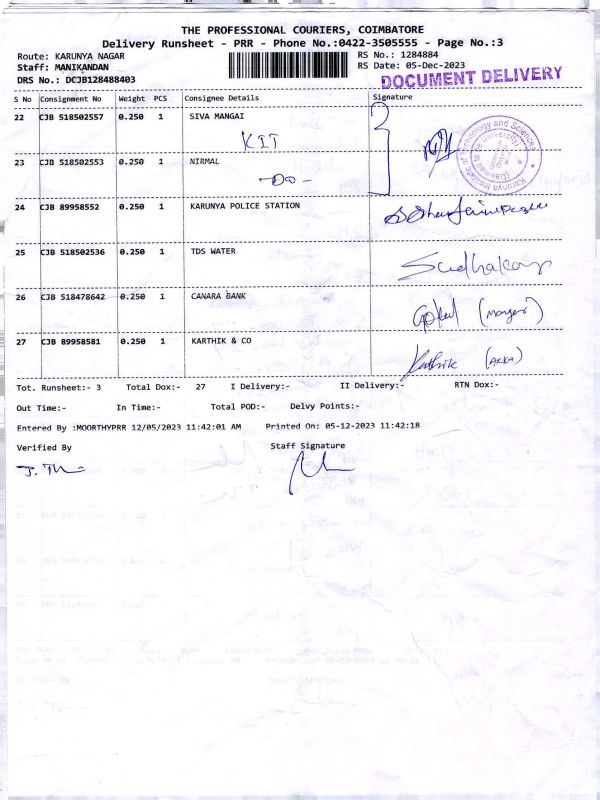 THE PROFESSIONAL COURIERS, COIMBATORE
Delivery Runsheet - PRR - Phone No.:0422-3505555 - Page No.:3
Route: KARUNYA NAGAR RS No.: 1284884
Staff: MANIKANDAN RS Date: 05-Dec-2023
DRS No.: DCJB128488403 DOCUMENT DELIVERY
S No Consignment No Weight PCS Consignee Details Signature
22 CJB 518502557 0.250 1 SIVA MANGAI
KIT
Karunya Institute of Technology and Sciences
(Deemed to be University)
23 CJB 518502553 0.250 1 NIRMAL
-Do-
24 CJB 89958552 0.250 1 KARUNYA POLICE STATION
25 CJB 518502536 0.250 1 TDS WATER
Sudhakar
26 CJB 518478642 0.250 1 CANARA BANK
Gokul (manger)
27 CJB 89958581 0.250 1 KARTHIK & CO
Karthik (AKKA)
Tot. Runsheet:- 3 Total Dox:- 27 I Delivery:- II Delivery:- RTN Dox:-
Out Time:- In Time:- Total POD:- Delvy Points:-
Entered By :MOORTHYPRR 12/05/2023 11:42:01 AM Printed On: 05-12-2023 11:42:18
Verified By Staff Signature